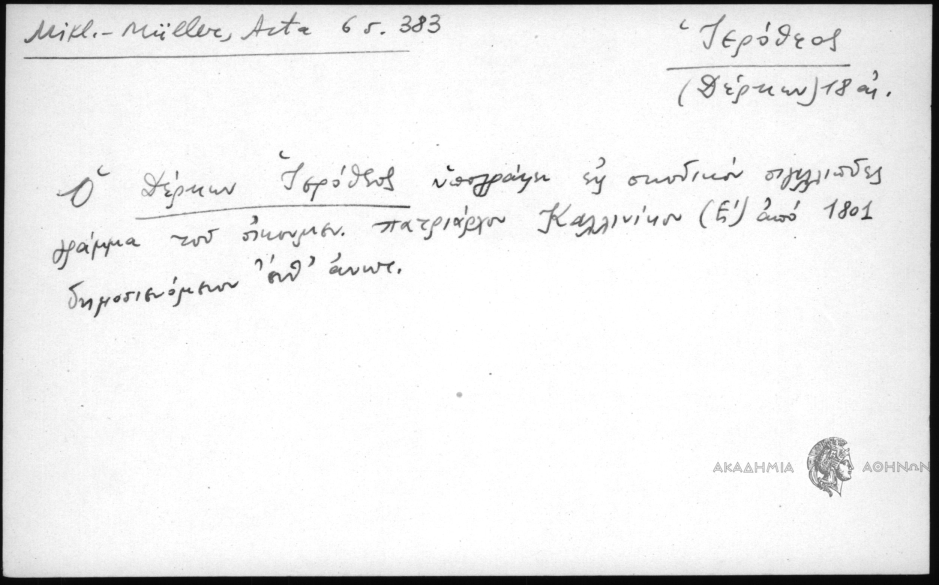 Mikl.-Müller, Acta 6 σ. 383
Ἱερόθεος
(Δέρκων) 18 αἰ.
Ὁ Δέρκων Ἱερόθεος ὑπογράφει εἰς συνοδικόν σιγιλλιῶδες
γράμμα τοῦ οἰκουμεν. πατριάρχου Καλλινίκου (Ε') ἀπό 1801
δημοσιευόμενον ἐνθ' ἀνωτ.
ΑΚΑΔΗΜΙΑ ΑΘΗΝΩΝ